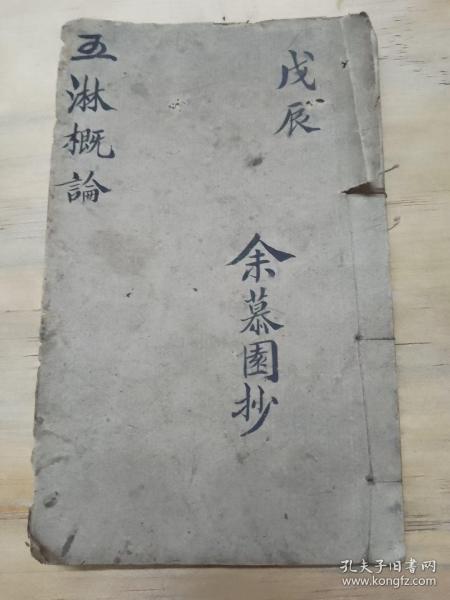 戊辰
余慕園抄
五淋概論
孔夫子旧书网
www.kongfz.com